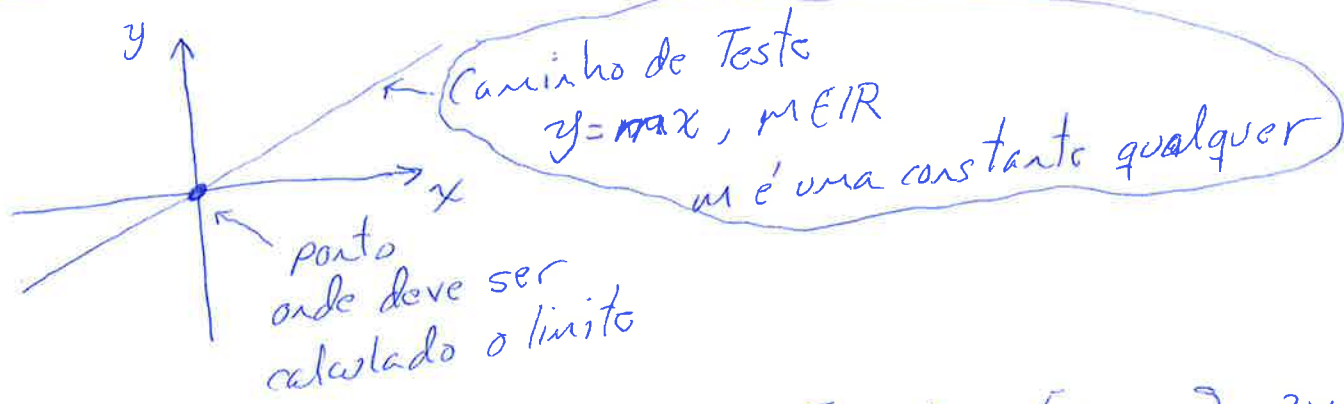 y
Caminho de Teste
y=mx, m∈IR
m é uma constante qualquer
x
ponto
onde deve ser
calculado o limite